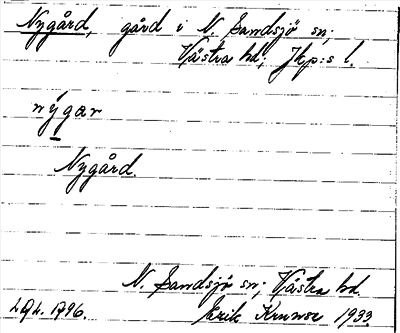 Nygård, gård i N. Sandsjö sn;
Västra hd; Jkp:s l.
nýgar
Nygård.
N. Sandsjö sn; Västra hd
Erik 1933